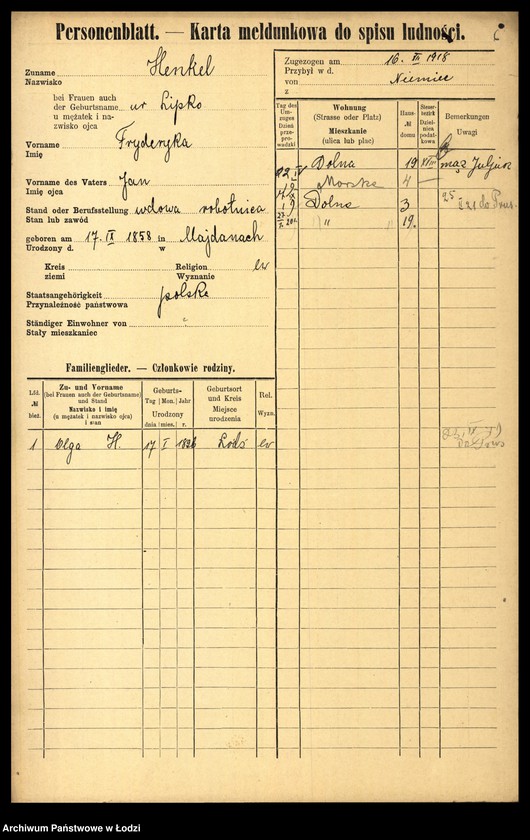 Personenblatt. — Karta meldunkowa do spisu ludności.
Zuname
Nazwisko Henkel
bei Frauen auch
der Geburtsname
u mężatek i na-
zwisko ojca ur Lipko
Vorname
Imię Fryderyka
Vorname des Vaters
Imię ojca Jan
Stand oder Berufsstellung
Stan lub zawód wdowa robotnica
geboren am 17. IX 1858 in Majdanach
Urodzony d. w
Kreis
ziemi
Religion
Wyznanie ew
Staatsangehörigkeit
Przynależność państwowa polska
Ständiger Einwohner von
Stały mieszkaniec
Zugezogen am 16. III 1918
Przybył w d.
von Niemiec
z
Tag des Um-zuges Dzień prze-pro-wadzki
Wohnung (Strasse oder Platz) Mieszkanie (ulica lub plac)
Haus-№ domu
Steuer-bezirk Dzielni-ca podat-kowa
Bemerkungen Uwagi
Dolna 19 VIII mąż Juljan
Morska 4
Dolna 3
" " 19.
Familienglieder. — Członkowie rodziny.
Lfd. № bież.
Zu- und Vorname (bei Frauen auch der Geburtsname) und Stand Nazwisko i imię (u mężatek i nazwisko ojca) i stan
Geburts- Tag Mon. Jahr Urodzony dnia mies. r.
Geburtsort und Kreis Miejsce urodzenia
Rel. Wyzn.
1 Olga H. 17 I Łódź ew
Archiwum Państwowe w Łodzi